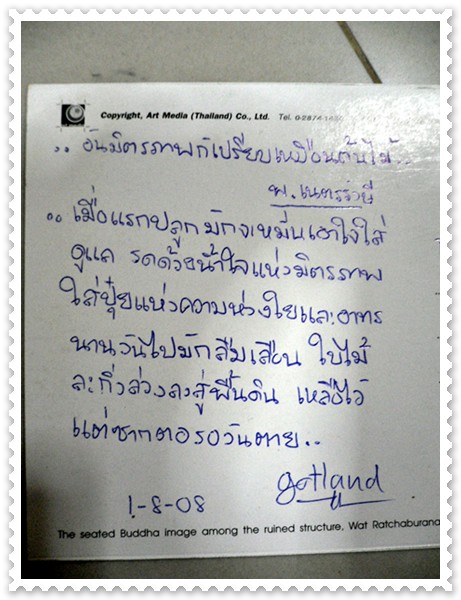 Copyright, Art Media (Thailand) Co., Ltd. Tel.
.. อันมิตรภาพก็เปรียบเหมือนต้นไม้..
พ. เนตรรังษี
.. เมื่อแรกปลูกมักจะหมั่นเอาใจใส่
ดูแล รดด้วยน้ำใจแห่งมิตรภาพ
ใส่ปุ๋ยแห่งความห่วงใยและอาทร
นานวันไปมักลืมเลือน ใบไม้
ละกิ่งล่วงลงสู่พื้นดิน เหลือไว้
แต่ซากตอรอวันตาย..
gotland
1-8-08
The seated Buddha image among the ruined structure, Wat Ratchaburana